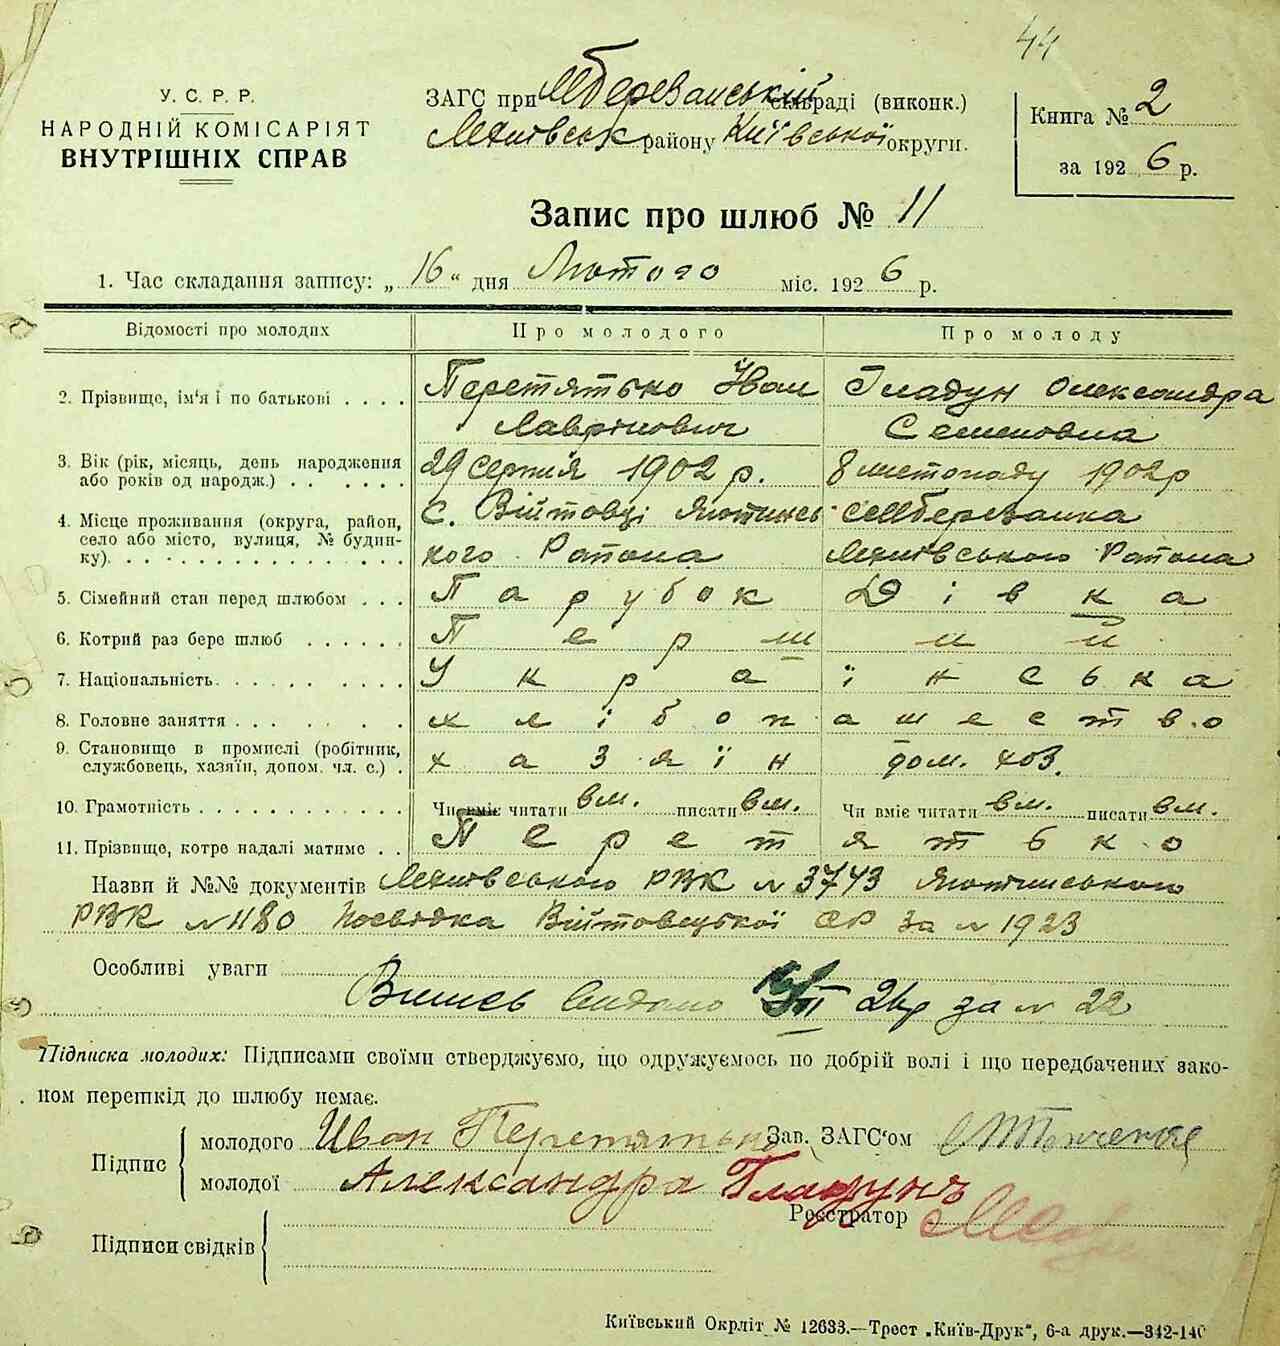 44
У. С. Р. Р.
НАРОДНІЙ КОМІСАРІЯТ
ВНУТРІШНІХ СПРАВ
ЗАГС при МБерезанській сільраді (виконк.)
району Київської округи.
Книга № 2
за 1926 р.
Запис про шлюб № 11
1. Час складання запису: „16“ дня Лютого міс. 1926 р.
Відомості про молодих
Про молодого
Про молоду
2. Прізвище, ім'я і по батькові . . . .
Перетятько Іван
Лаврінович
Гладун Олександра
Семеновна
3. Вік (рік, місяць, день народження
або років од народж.) . . . . . . .
29 Серпня 1902 р.
8 листопаду 1902 р
4. Місце проживання (округа, район,
село або місто, вулиця, № будин-
ку). . . . . . . . . . . . . . .
с. Війтовці Яготинсь-
кого Района
село МБерезанка
Района
5. Сімейний стан перед шлюбом . . .
Парубок
Дівка
6. Котрий раз бере шлюб . . . . . .
Перший
7. Національність. . . . . . . . . .
Українська
8. Головне заняття . . . . . . . . .
хлібопашество
9. Становище в промислі (робітник,
службовець, хазяїн, допом. чл. с.) .
хазяїн
дом. хоз.
10. Грамотність . . . . . . . . . . .
Чи вміє читати вм. писати вм.
Чи вміє читати вм. писати вм.
11. Прізвище, котре надалі матиме . .
Перетятько
Назви й №№ документів РВК № 3743 Яготинського
РВК № 1180 Посвідка Війтовецької СР за № 1923
Особливі уваги
Випис Видано 16/III 26р за № 22
Підписка молодих: Підписами своїми стверджуємо, що одружуємось по добрій волі і що передбачених зако-
ном перешкід до шлюбу немає.
Підпис
молодого Иван Перетятько
Зав. ЗАГС'ом
молодої Александра Гладунъ
Реєстратор
Підписи свідків
Київський Окрліт № 12633.—Трест „Київ-Друк“, 6-а друк.—342-140